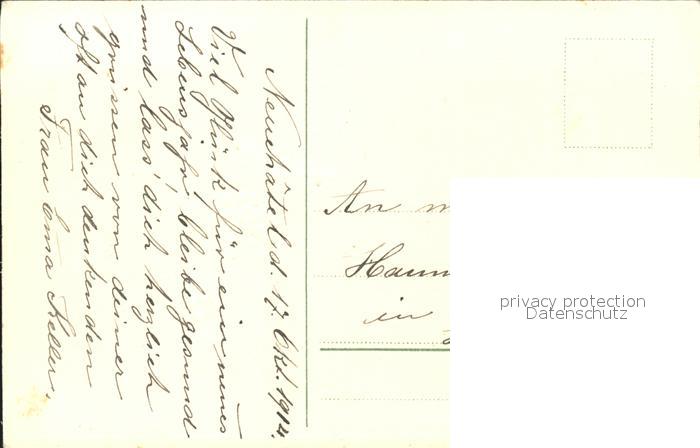 Neuchâtel d. 17. Okt. 1914.
Viel Glück für ein neues
Lebensjahr, bleibe gesund
und lass' dich herzlich
grüssen von deiner
oft an dich denkenden
Frau Ema Keller.
An m
Hann
in
privacy protection
Datenschutz